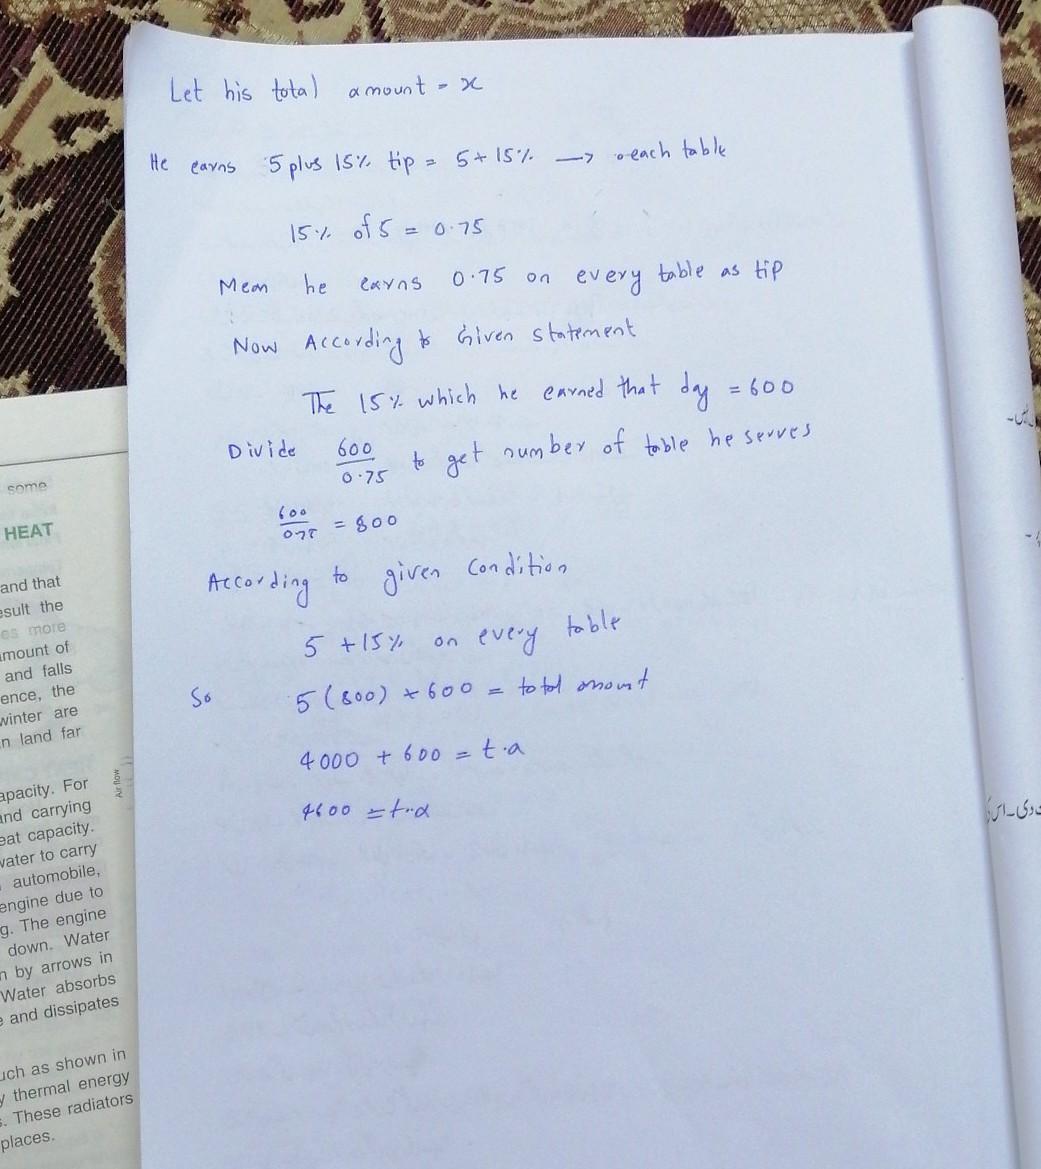 Let his total amount = x
He earns 5 plus 15% tip = 5 + 15% → each table
15% of 5 = 0.75
Mean he earns 0.75 on every table as tip
Now According to Given statement
The 15% which he earned that day = 600
Divide 600/0.75 to get number of table he serves
600/0.75 = 800
According to given Condition
5 + 15% on every table
So 5(800) + 600 = total amount
4000 + 600 = t.a
4600 = t.a
some
HEAT
and that
esult the
es more
mount of
and falls
ence, the
winter are
n land far
Air flow
apacity. For
and carrying
eat capacity.
water to carry
automobile,
engine due to
g. The engine
down. Water
n by arrows in
Water absorbs
e and dissipates
uch as shown in
y thermal energy
s. These radiators
places.